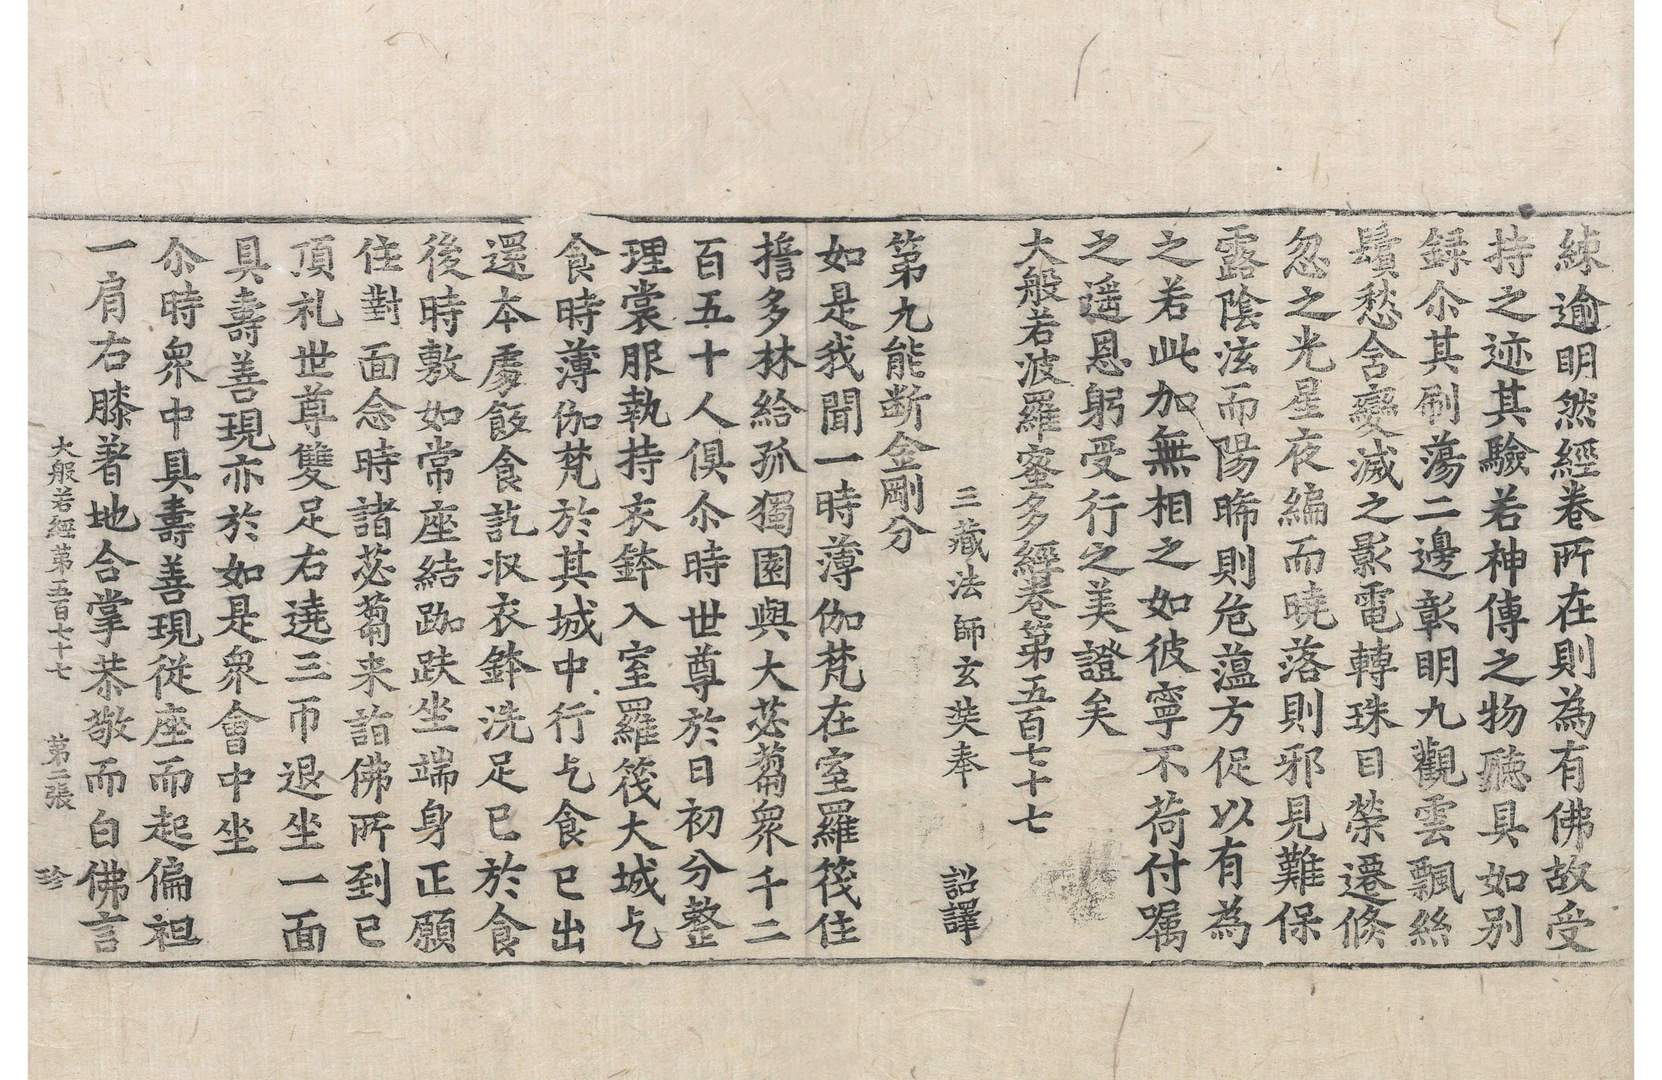 練逾明然經卷所在則為有佛故受
持之迹其驗若神傳之物聽具如別
録尒其刷蕩二邊彰明九觀雲飄絲
鬢愁含變滅之影電轉珠目榮遷倏
忽之光星夜編而曉落則邪見難保
露陰泫而陽晞則危薀方促以有為
之若此加無相之如彼寧不荷付嘱
之遥恩躬受行之美證矣
大般若波羅蜜多經卷第五百七十七
三藏法師玄奘奉 詔譯
第九能断金剛分
如是我聞一時薄伽梵在室羅筏住
擔多林給孤獨園與大苾蒭眾千二
百五十人俱尒時世尊於日初分整
理裳服執持衣鉢入室羅筏大城乞
食時薄伽梵於其城中行乞食已出
還本處飯食訖收衣鉢洗足已於食
後時敷如常座結跏趺坐端身正願
住對面念時諸苾蒭来詣佛所到已
頂礼世尊雙足右遶三帀退坐一面
具壽善現亦於如是眾會中坐
尒時眾中具壽善現從座而起偏袒
一肩右膝著地合掌恭敬而白佛言
大般若經第五百七十七 第二張 珍